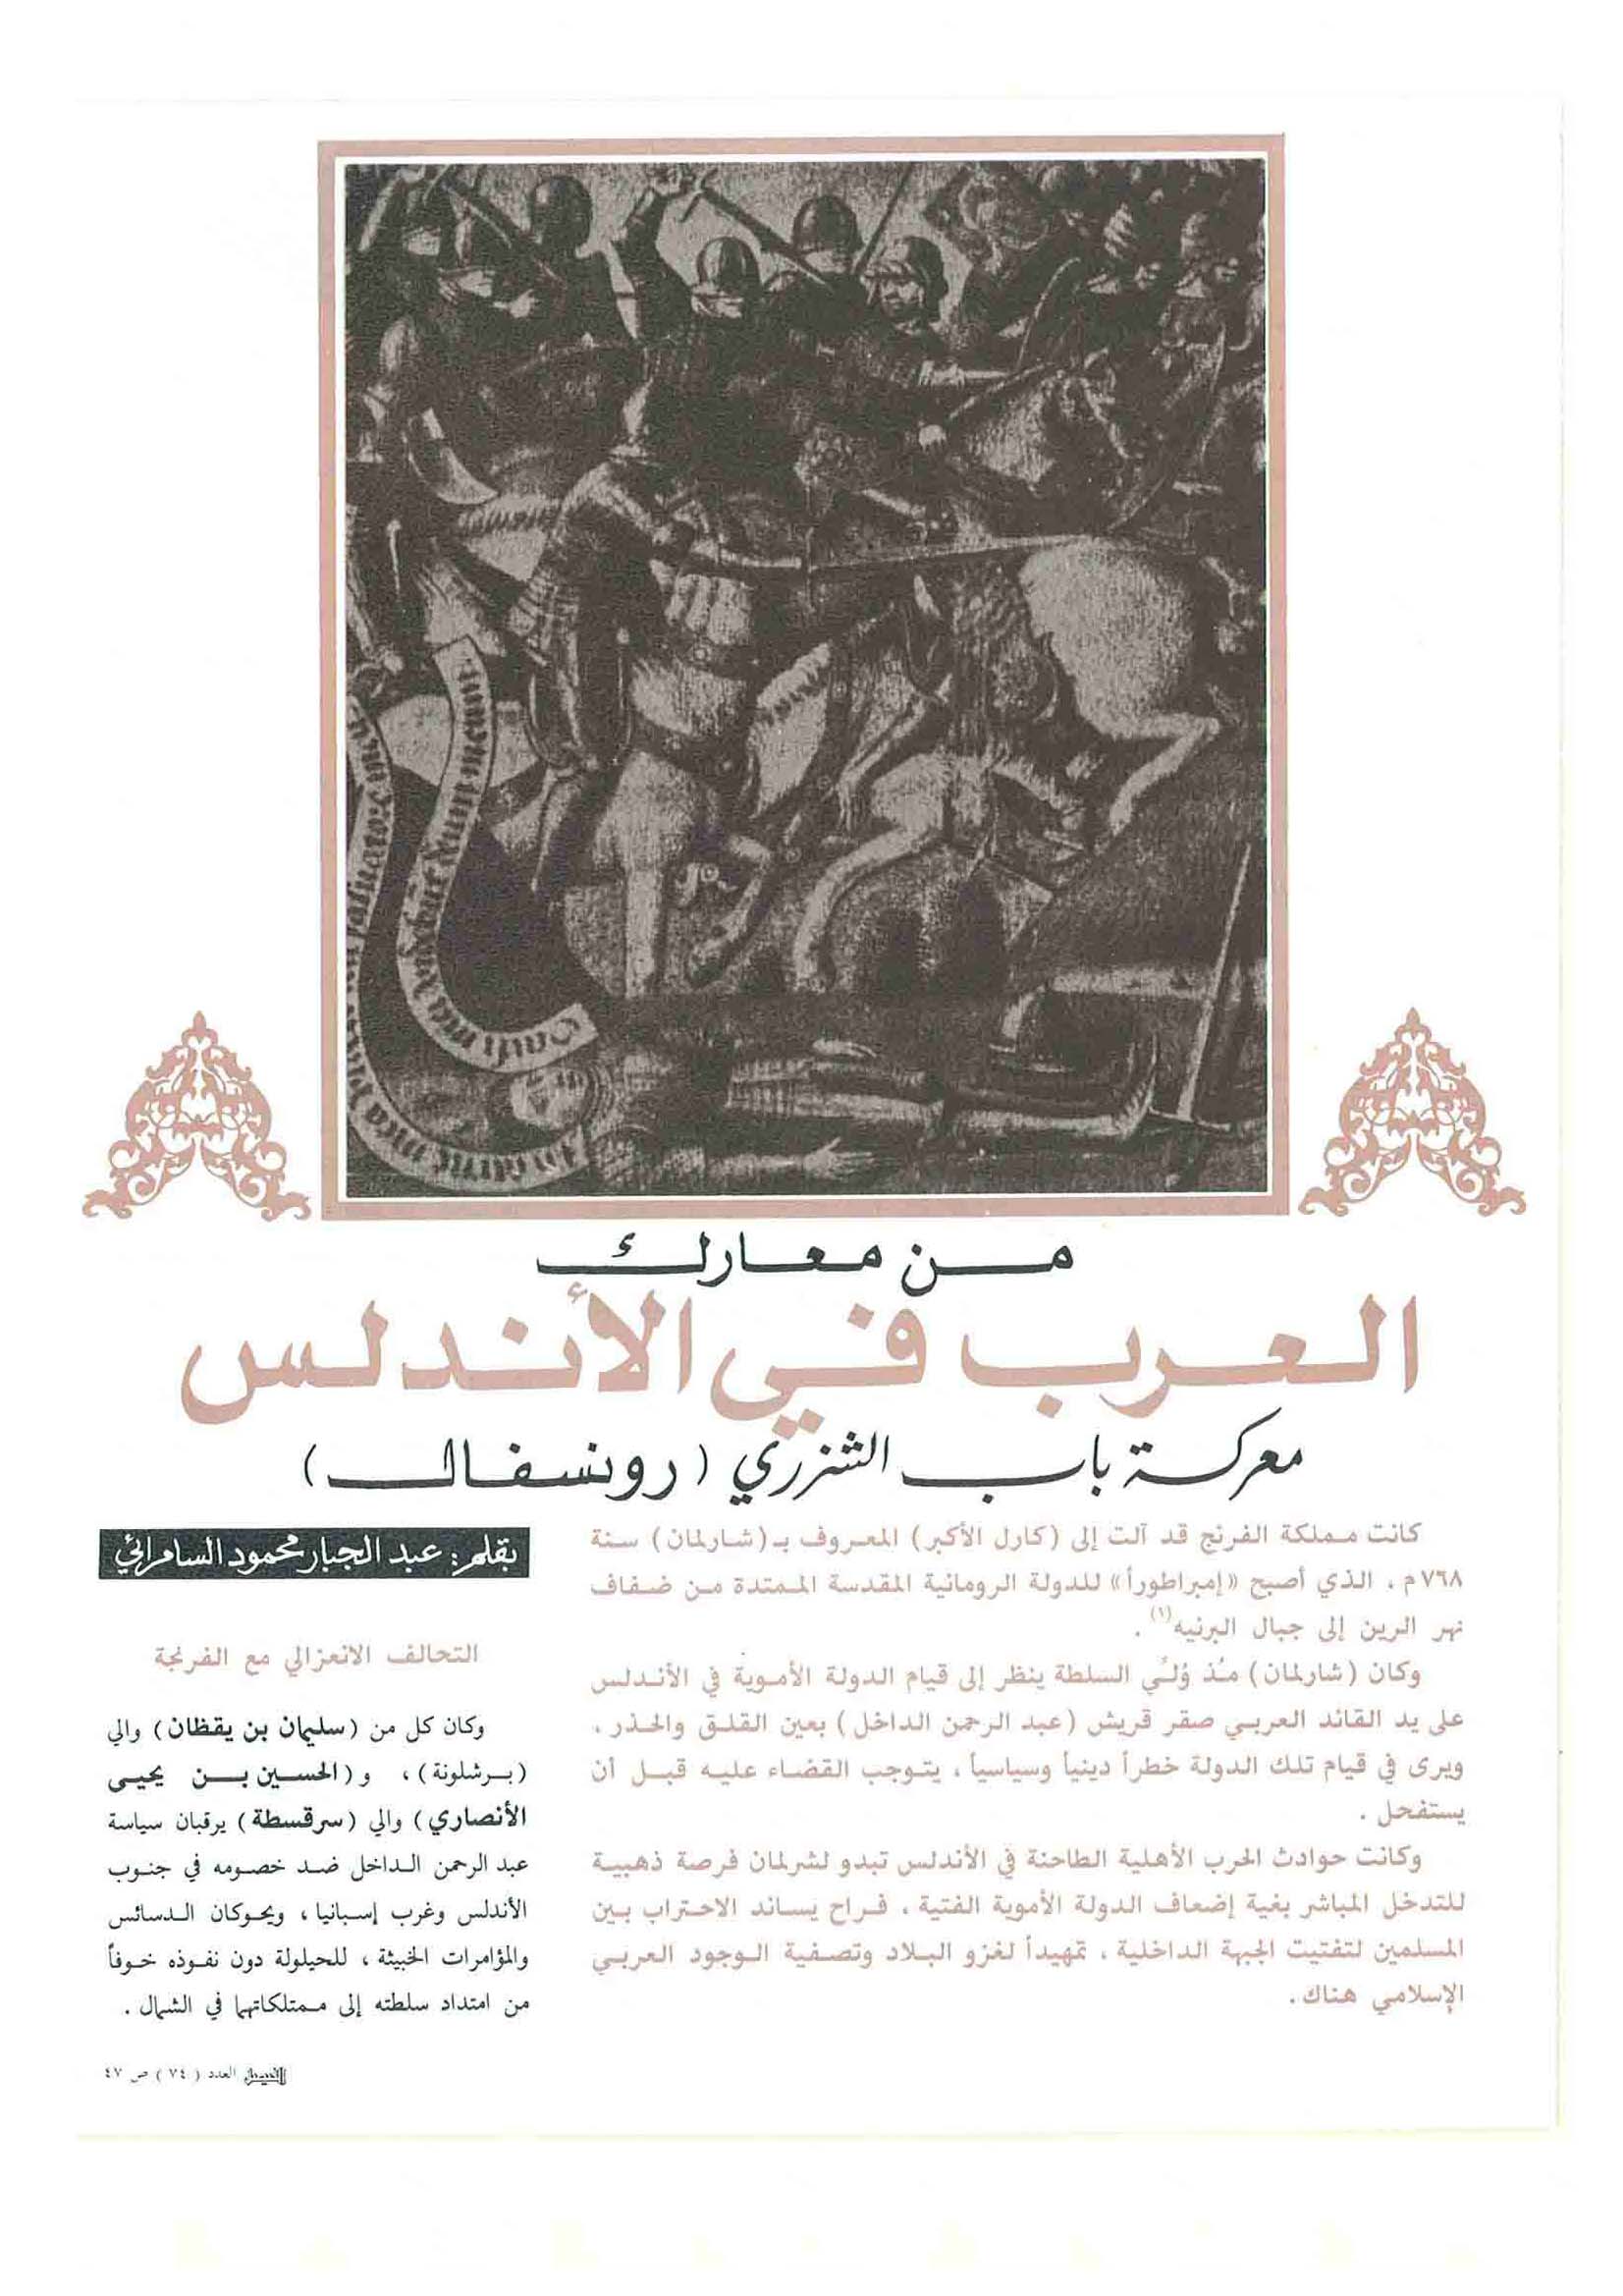 من معارك
العرب في الأندلس
معركة باب الشنزري (رونسفال)
كانت مملكة الفرنج قد آلت إلى (كارل الأكبر) المعروف بـ(شارلمان) سنة
٧٦٨م ، الذي أصبح «إمبراطوراً» للدولة الرومانية المقدسة الممتدة من ضفاف
نهر الرين إلى جبال البرنيه(١) .
وكان (شارلمان) مُذ وُلّي السلطة ينظر إلى قيام الدولة الأموية في الأندلس
على يد القائد العربي صقر قريش (عبد الرحمن الداخل) بعين القلق والحذر ،
ويرى في قيام تلك الدولة خطراً دينياً وسياسياً ، يتوجب القضاء عليه قبل أن
يستفحل .
وكانت حوادث الحرب الأهلية الطاحنة في الأندلس تبدو لشرلمان فرصة ذهبية
للتدخل المباشر بغية إضعاف الدولة الأموية الفتية ، فراح يساند الاحتراب بين
المسلمين لتفتيت الجبهة الداخلية ، تمهيداً لغزو البلاد وتصفية الوجود العربي
الإسلامي هناك .
بقلم : عبد الجبار محمود السامرائي
التحالف الانعزالي مع الفرنجة
وكان كل من (سليمان بن يقظان) والي
(برشلونة) ، و(الحسين بن يحيى
الأنصاري) والي (سرقسطة) يرقبان سياسة
عبد الرحمن الداخل ضد خصومه في جنوب
الأندلس وغرب إسبانيا ، ويحوكان الدسائس
والمؤامرات الخبيثة ، للحيلولة دون نفوذه خوفاً
من امتداد سلطته إلى ممتلكاتهما في الشمال .
الفيصل العدد (٧٤) ص ٤٧